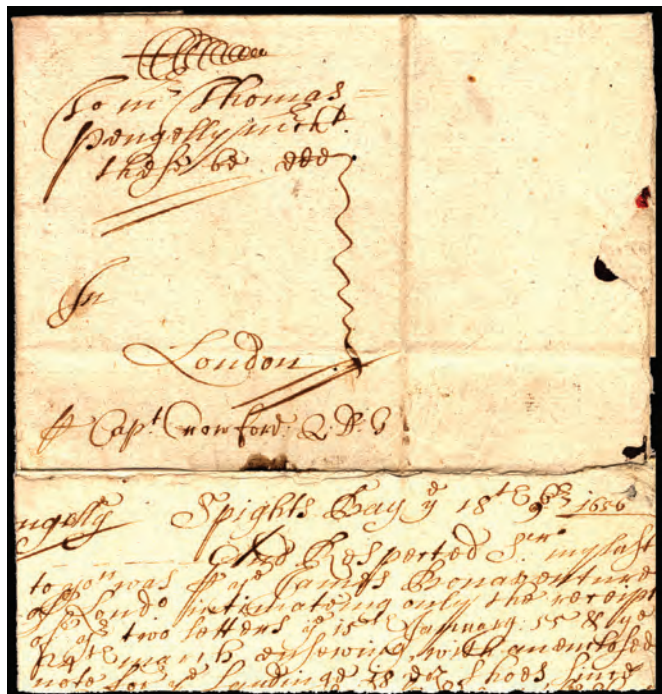 To mr Thomas
Pengelly mrcht
these be ddd
In
London
p Capt Crowford: Q: D: G
ngelly Spights Bay ye 18th 9br 1656
Respected Sr my last
to you was p ye James Bonaventure
of Londo intimateing only the receipt
of yr two letters ye 15th January: 55 & ye
24th march ensewing with an enclosed
note for ye Landinge 18 dz shoes, since